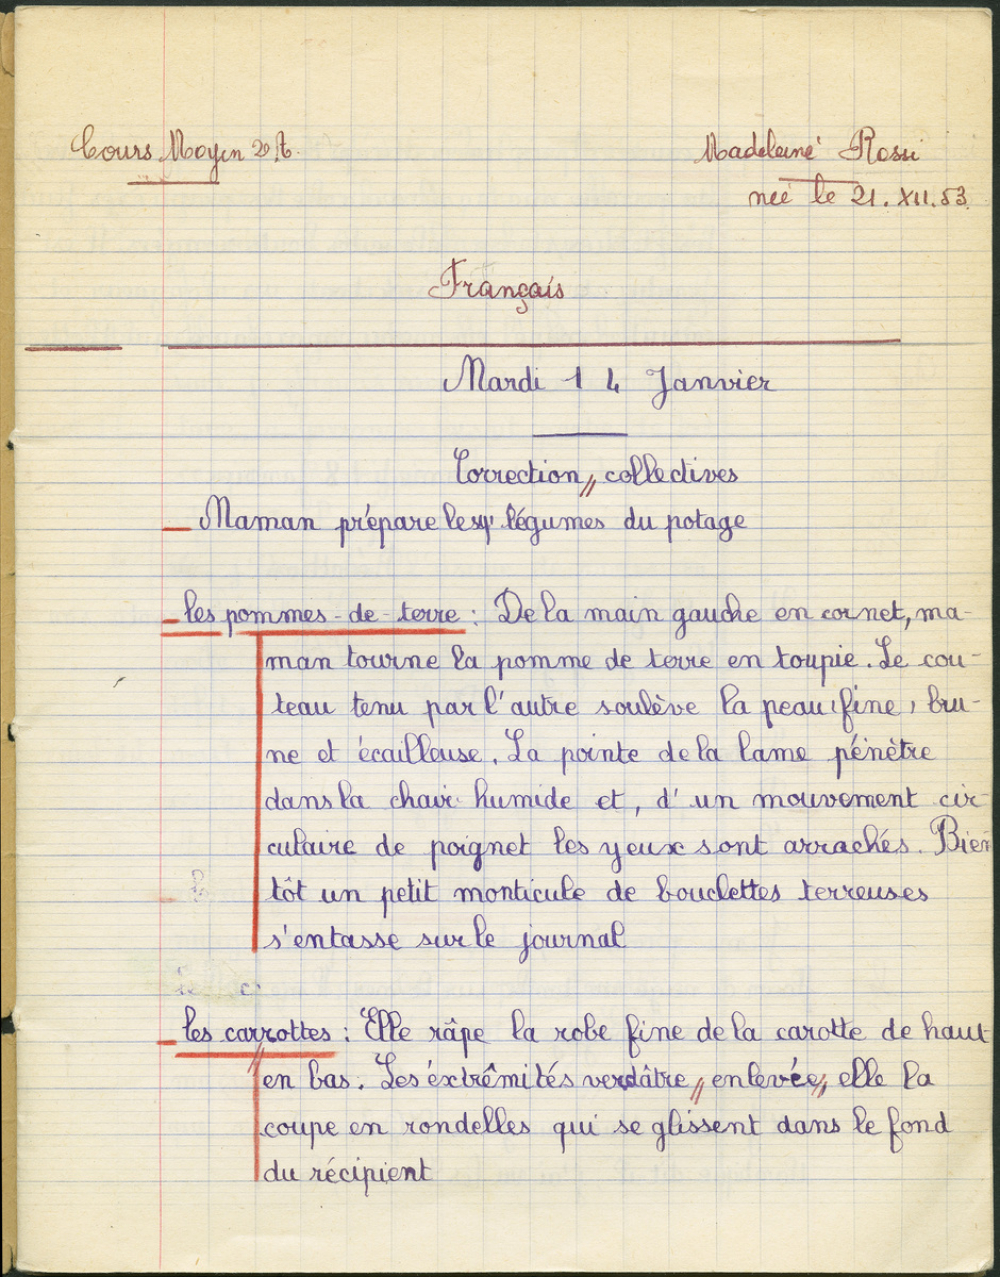 Cours Moyen 2 A.
Madeleine Rossi
née le 21.XII.53
Français
Mardi 14 Janvier
Correction collectives
Maman prépare les légumes du potage
les pommes-de-terre : De la main gauche en cornet, ma-
man tourne la pomme de terre en toupie. Le cou-
teau tenu par l'autre soulève la peau fine, bru-
ne et écailleuse. La pointe de la lame pénètre
dans la chair humide et, d'un mouvement cir-
culaire de poignet les yeux sont arrachés. Bien
tôt un petit monticule de bouclettes terreuses
s'entasse sur le journal
les carrottes : Elle râpe la robe fine de la carotte de haut
en bas. Les éxtrêmités verdâtre, enlevée, elle la
coupe en rondelles qui se glissent dans le fond
du récipient